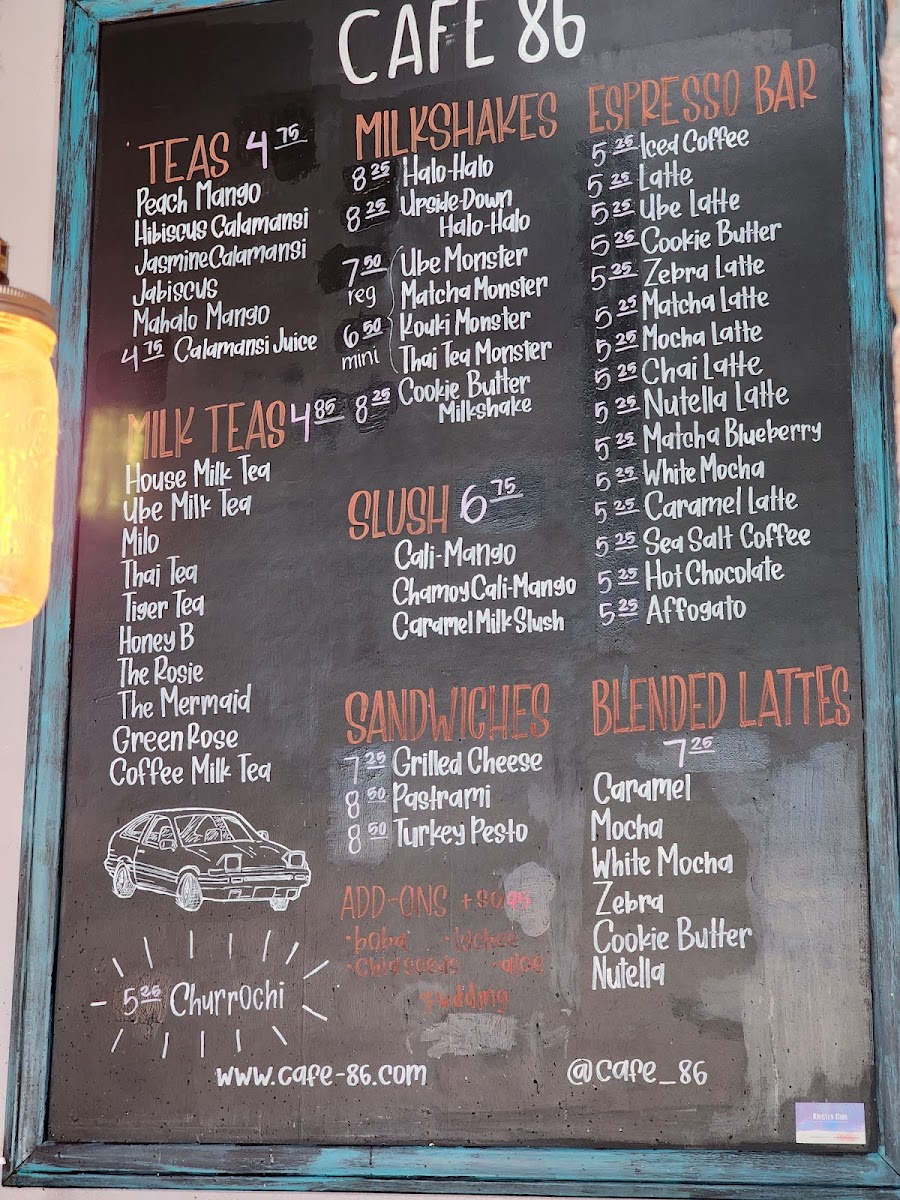 CAFE 86
TEAS 4 75
Peach Mango
Hibiscus Calamansi
Jasmine Calamansi
Jabiscus
Mahalo Mango
4 75 Calamansi Juice
MILK TEAS 4 85
House Milk Tea
Ube Milk Tea
Milo
Thai Tea
Tiger Tea
Honey B
The Rosie
The Mermaid
Green Rose
Coffee Milk Tea
5 25 Churrochi
MILKSHAKES
8 25 Halo-Halo
8 25 Upside-Down
Halo-Halo
7 50 Ube Monster
reg Matcha Monster
6 50 Kouki Monster
mini Thai Tea Monster
8 25 Cookie Butter
Milkshake
SLUSH 6 75
Cali-Mango
Chamoy Cali-Mango
Caramel Milk Slush
SANDWICHES
7 25 Grilled Cheese
8 50 Pastrami
8 50 Turkey Pesto
ADD-ONS
•boba •lychee
•chia seeds •aloe
pudding
ESPRESSO BAR
5 25 Iced Coffee
5 25 Latte
5 25 Ube Latte
5 25 Cookie Butter
5 25 Zebra Latte
5 25 Matcha Latte
5 25 Mocha Latte
5 25 Chai Latte
5 25 Nutella Latte
5 25 Matcha Blueberry
5 25 White Mocha
5 25 Caramel Latte
5 25 Sea Salt Coffee
5 25 Hot Chocolate
5 25 Affogato
BLENDED LATTES
7 25
Caramel
Mocha
White Mocha
Zebra
Cookie Butter
Nutella
www.cafe-86.com
@cafe_86